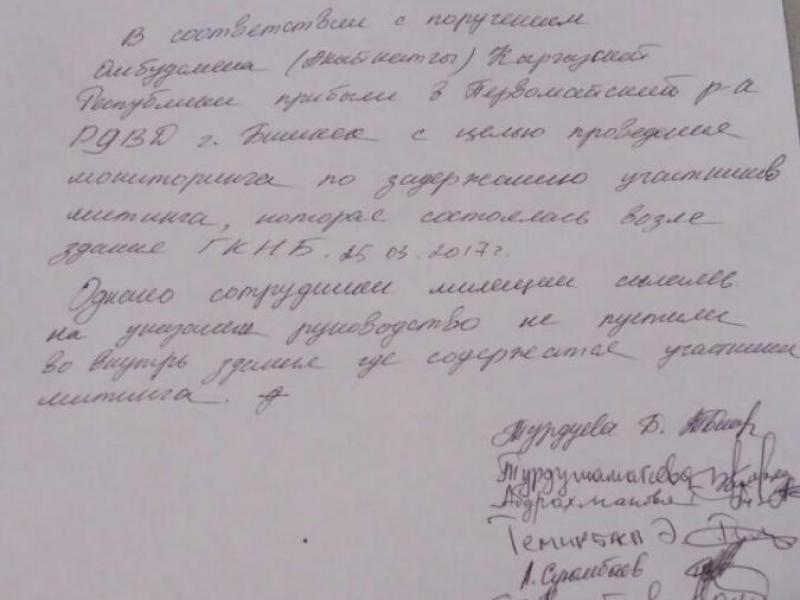 В соответствии с поручением
Омбудсмена (Акыйкатчы) Кыргызской
Республики прибыли в Первомайский р-а
РУВД г. Бишкек с целью проведения
мониторинга по задержанию участников
митинга, которая состоялась возле
здание ГКНБ. 25 03. 2017г.
Однако сотрудники милиции ссылаясь
на указание руководство не пустили
во внутрь здания где содержатся участники
митинга.
Турдуева Б.
Турдушаматова
Абдрахманова
Темирбек Э.
А. Суромбаев